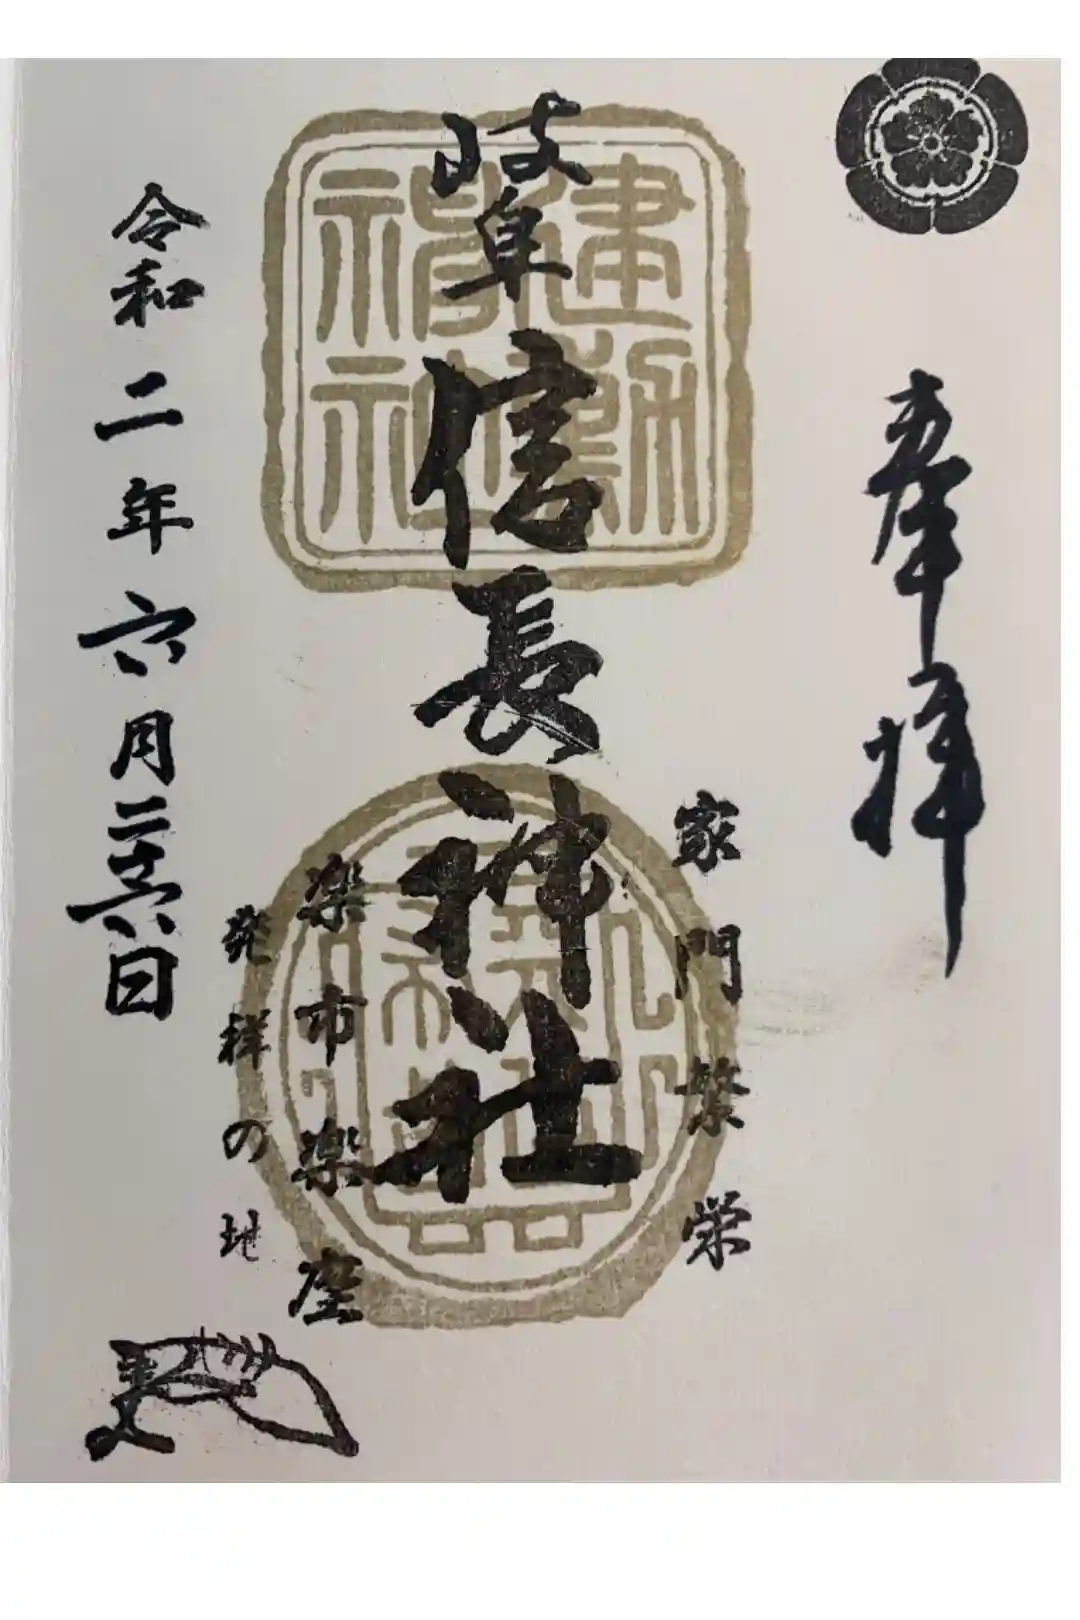 奉拝
家門繁栄
岐阜信長神社
建勲神社
楽市楽座
発祥の地
令和二年六月二十六日